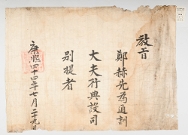 教旨
鄭赫先為通訓
大夫行典設司
別提者
康熙四十四年七月二十九日